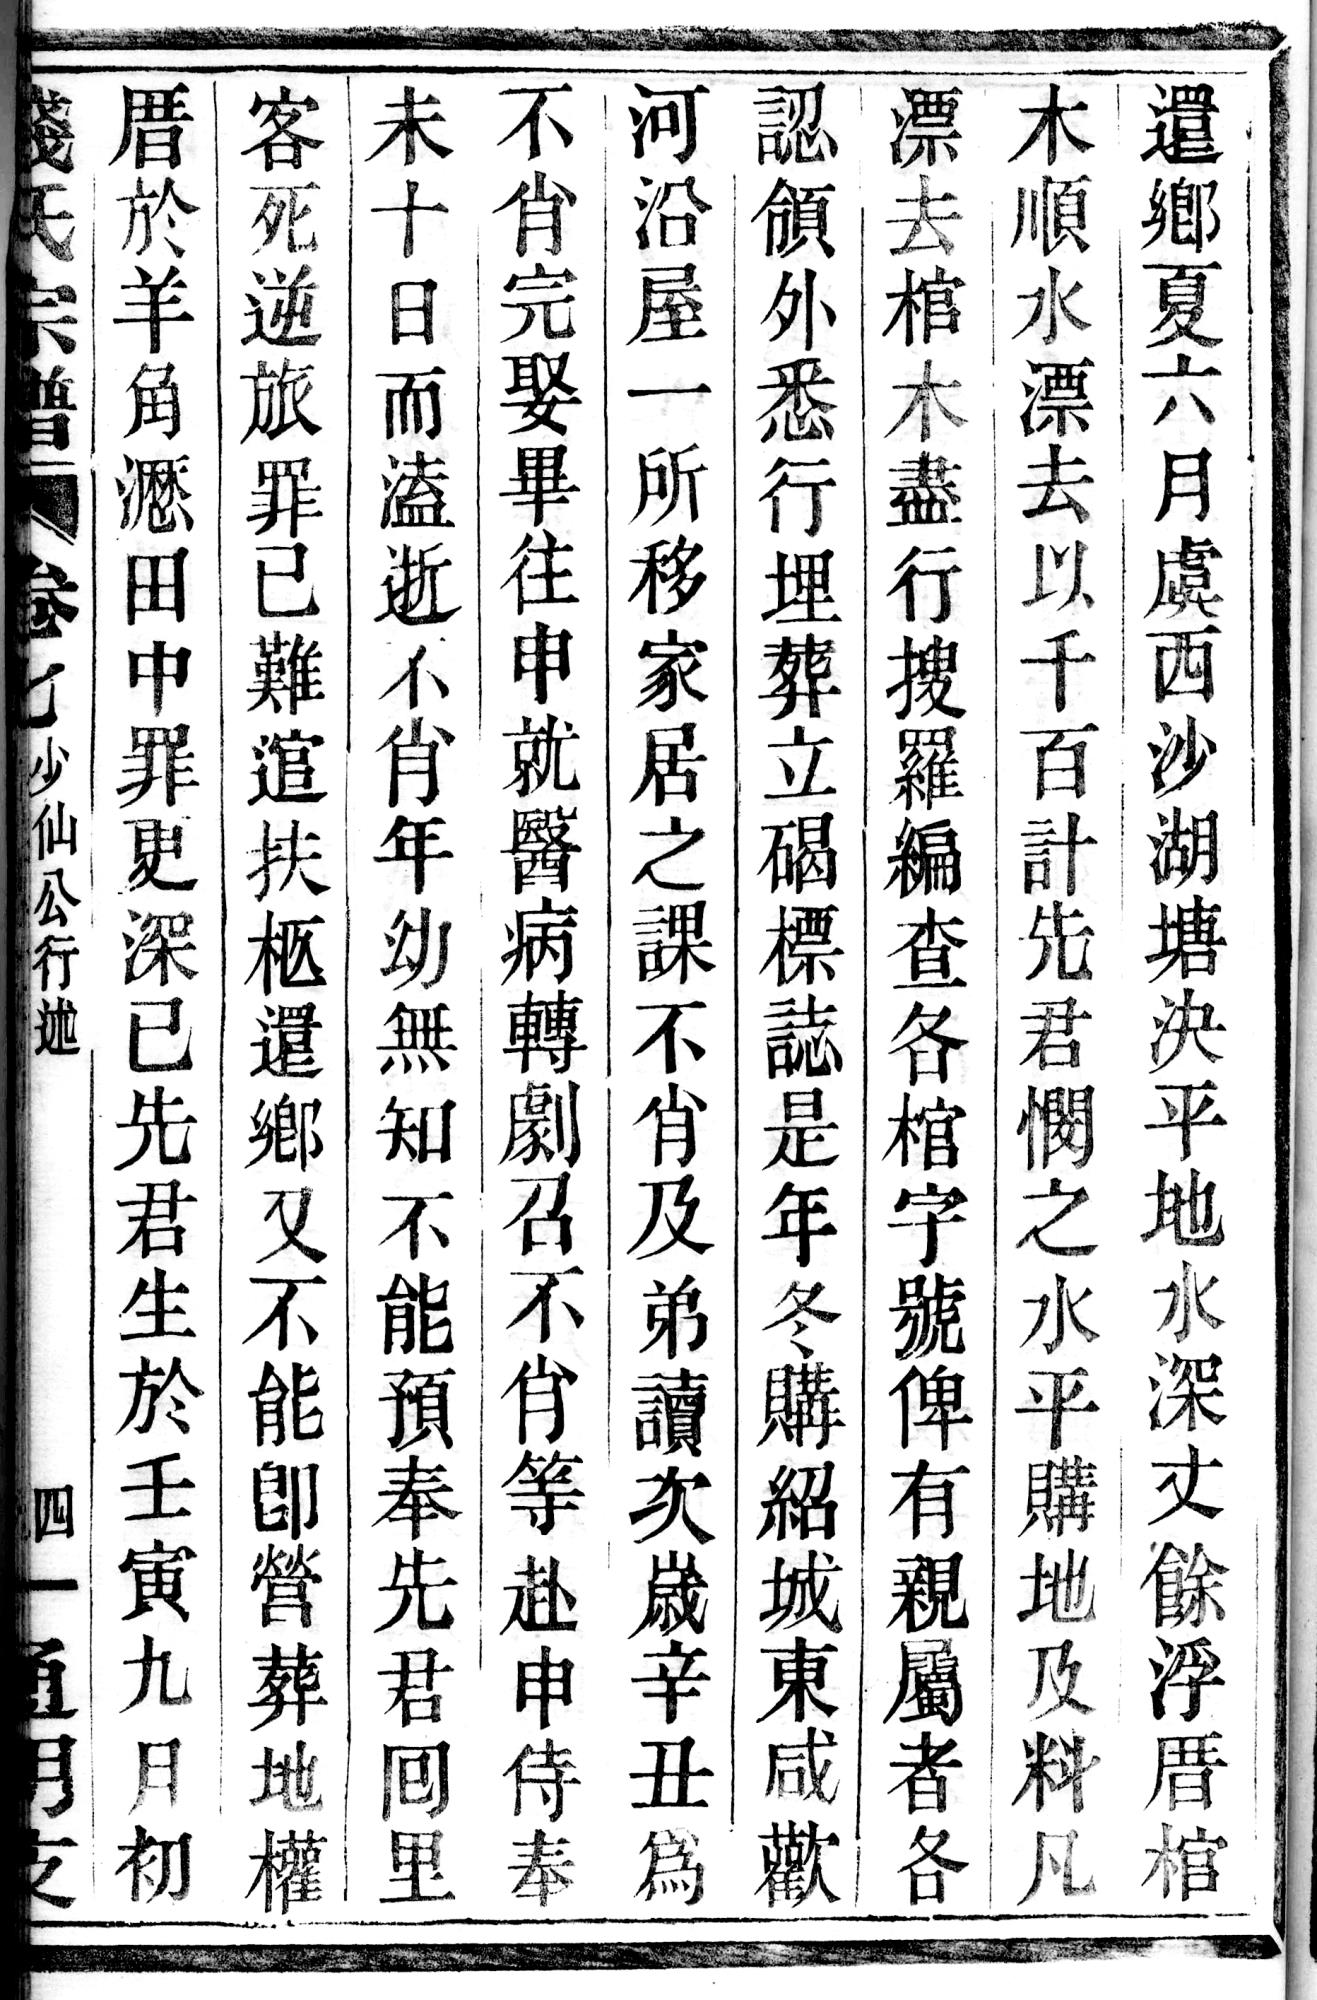 還鄉夏六月虞西沙湖塘決平地水深丈餘浮厝棺
木順水漂去以千百計先君憫之水平購地及料凡
漂去棺木盡行搜羅編查各棺字號俾有親屬者各
認領外悉行埋葬立碣標誌是年冬購紹城東咸歡
河沿屋一所移家居之課不肖及弟讀次歲辛丑為
不肖完娶畢往申就醫病轉劇召不肖等赴申侍奉
未十日而溘逝不肖年幼無知不能預奉先君回里
客死逆旅罪已難逭扶柩還鄉又不能卽營葬地權
厝於羊角濹田中罪更深已先君生於壬寅九月初
錢氏宗譜 卷七 少仙公行述 四一 通明支